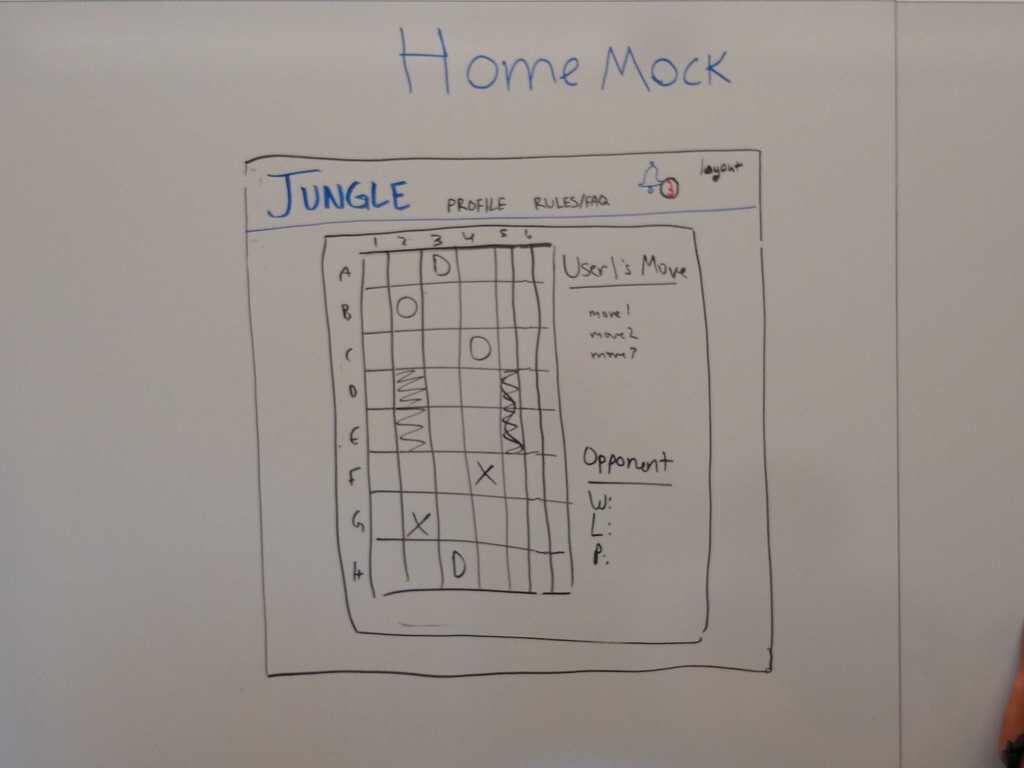 Home Mock
JUNGLE PROFILE RULES/FAQ layout
1 2 3 4 5 6
A D
B O
C O
D
E
F X
G X
H D
User1's Move
move1
move2
Opponent
W:
L:
P: